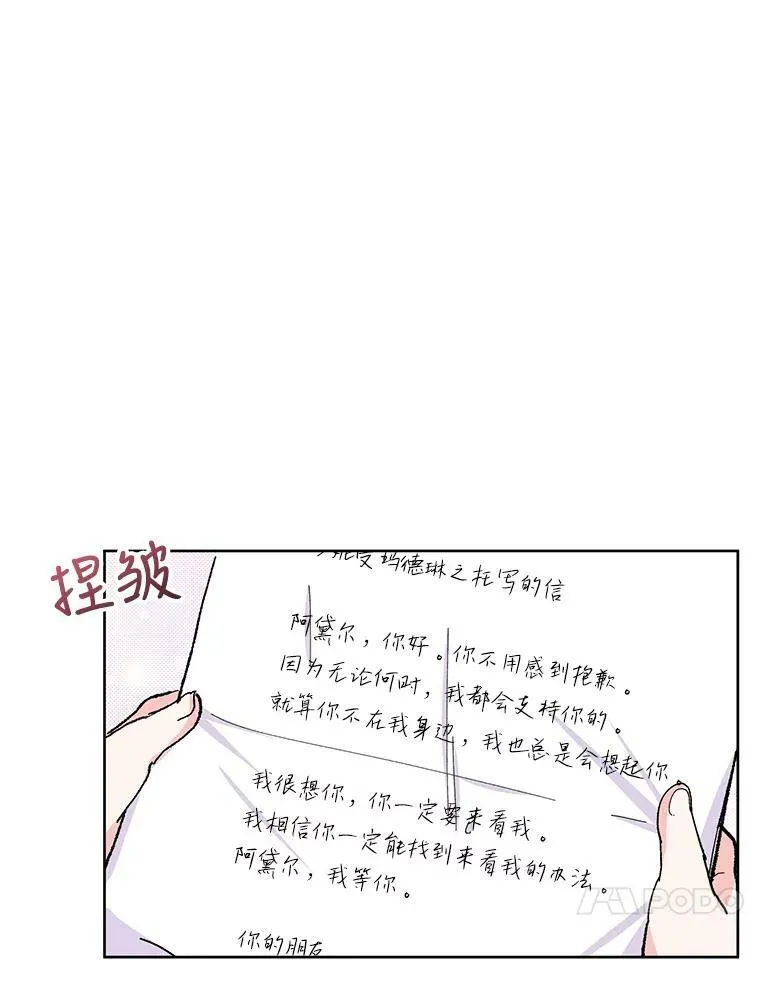 捏皱
受玛德琳之托写的信
阿黛尔，你好。你不用感到抱歉。
因为无论何时，我都会支持你的。
就算你不在我身边，我也总是会想起你。
我很想你，你一定要来看我。
我相信你一定能找到来看我的办法。
阿黛尔，我等你。
你的朋友
APODO